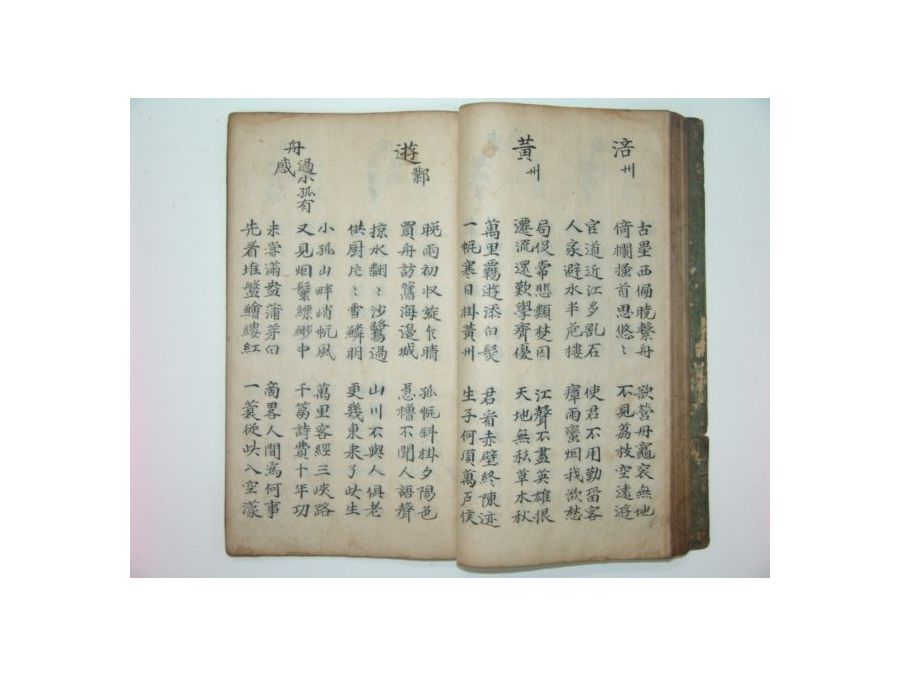 涪州
古壘西偏曉繫舟 欲營丹竈衰無地
倚欄搔首思悠〻 不見荔枝空遠遊
官道近江多亂石 使君不用勤留客
人家避水半危樓 瘴雨蠻烟我欲愁
黃州
局促常悲類楚囚 江聲不盡英雄恨
遷流還歎學齊優 天地無私草木秋
萬里羈遊添白髮 君看赤壁終陳迹
一帆寒日掛黃州 生子何須萬戶侯
遊鄞
晚雨初收旋作晴 孤帆斜掛夕陽色
買舟訪舊海邊城 急櫓不聞人語聲
掠水翻〻沙鷺過 山川不與人俱老
供厨片〻雪鱗明 更幾東來了此生
舟過小孤有感
小孤山畔峭帆風 萬里客經三峽路
又見烟鬟縹緲中 千篇詩費十年功
未嘗滿箸蒲芽白 商畧人間爲何事
先看堆盤鱠縷紅 一蓑從此入空濛